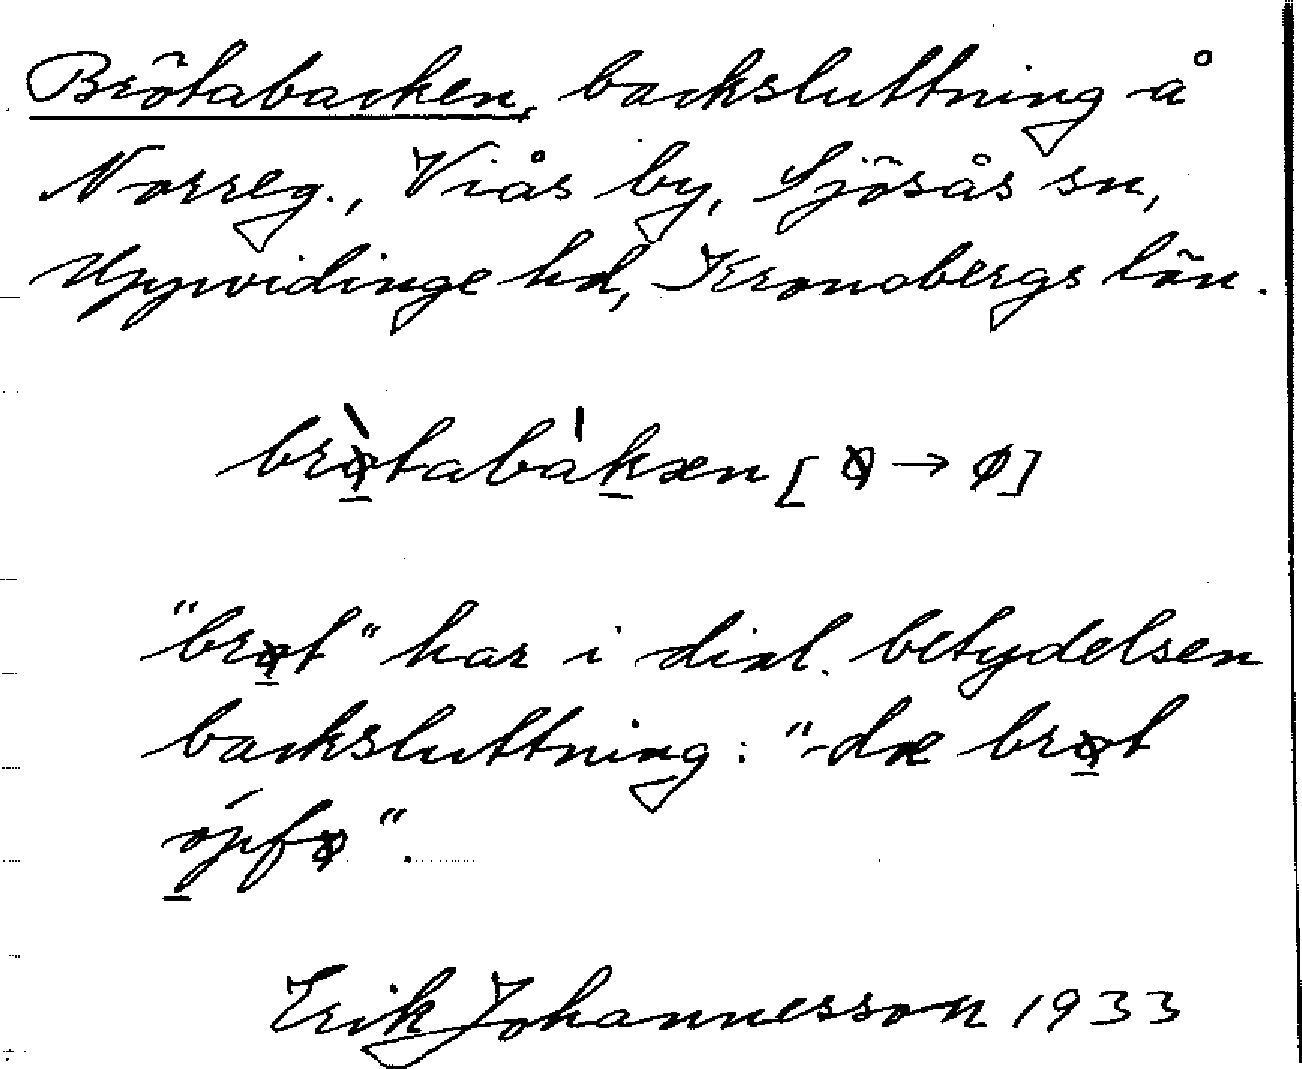 Brötabacken, backsluttning å
Norreg., Viås by, Sjösås sn,
Uppvidinge hd, Kronobergs län.
brø̀tabákæn [ꝍ → ø]
"brøt" har i dial. betydelsen
backsluttning: "dæ brøt
ópfø".
Erik Johannesson 1933